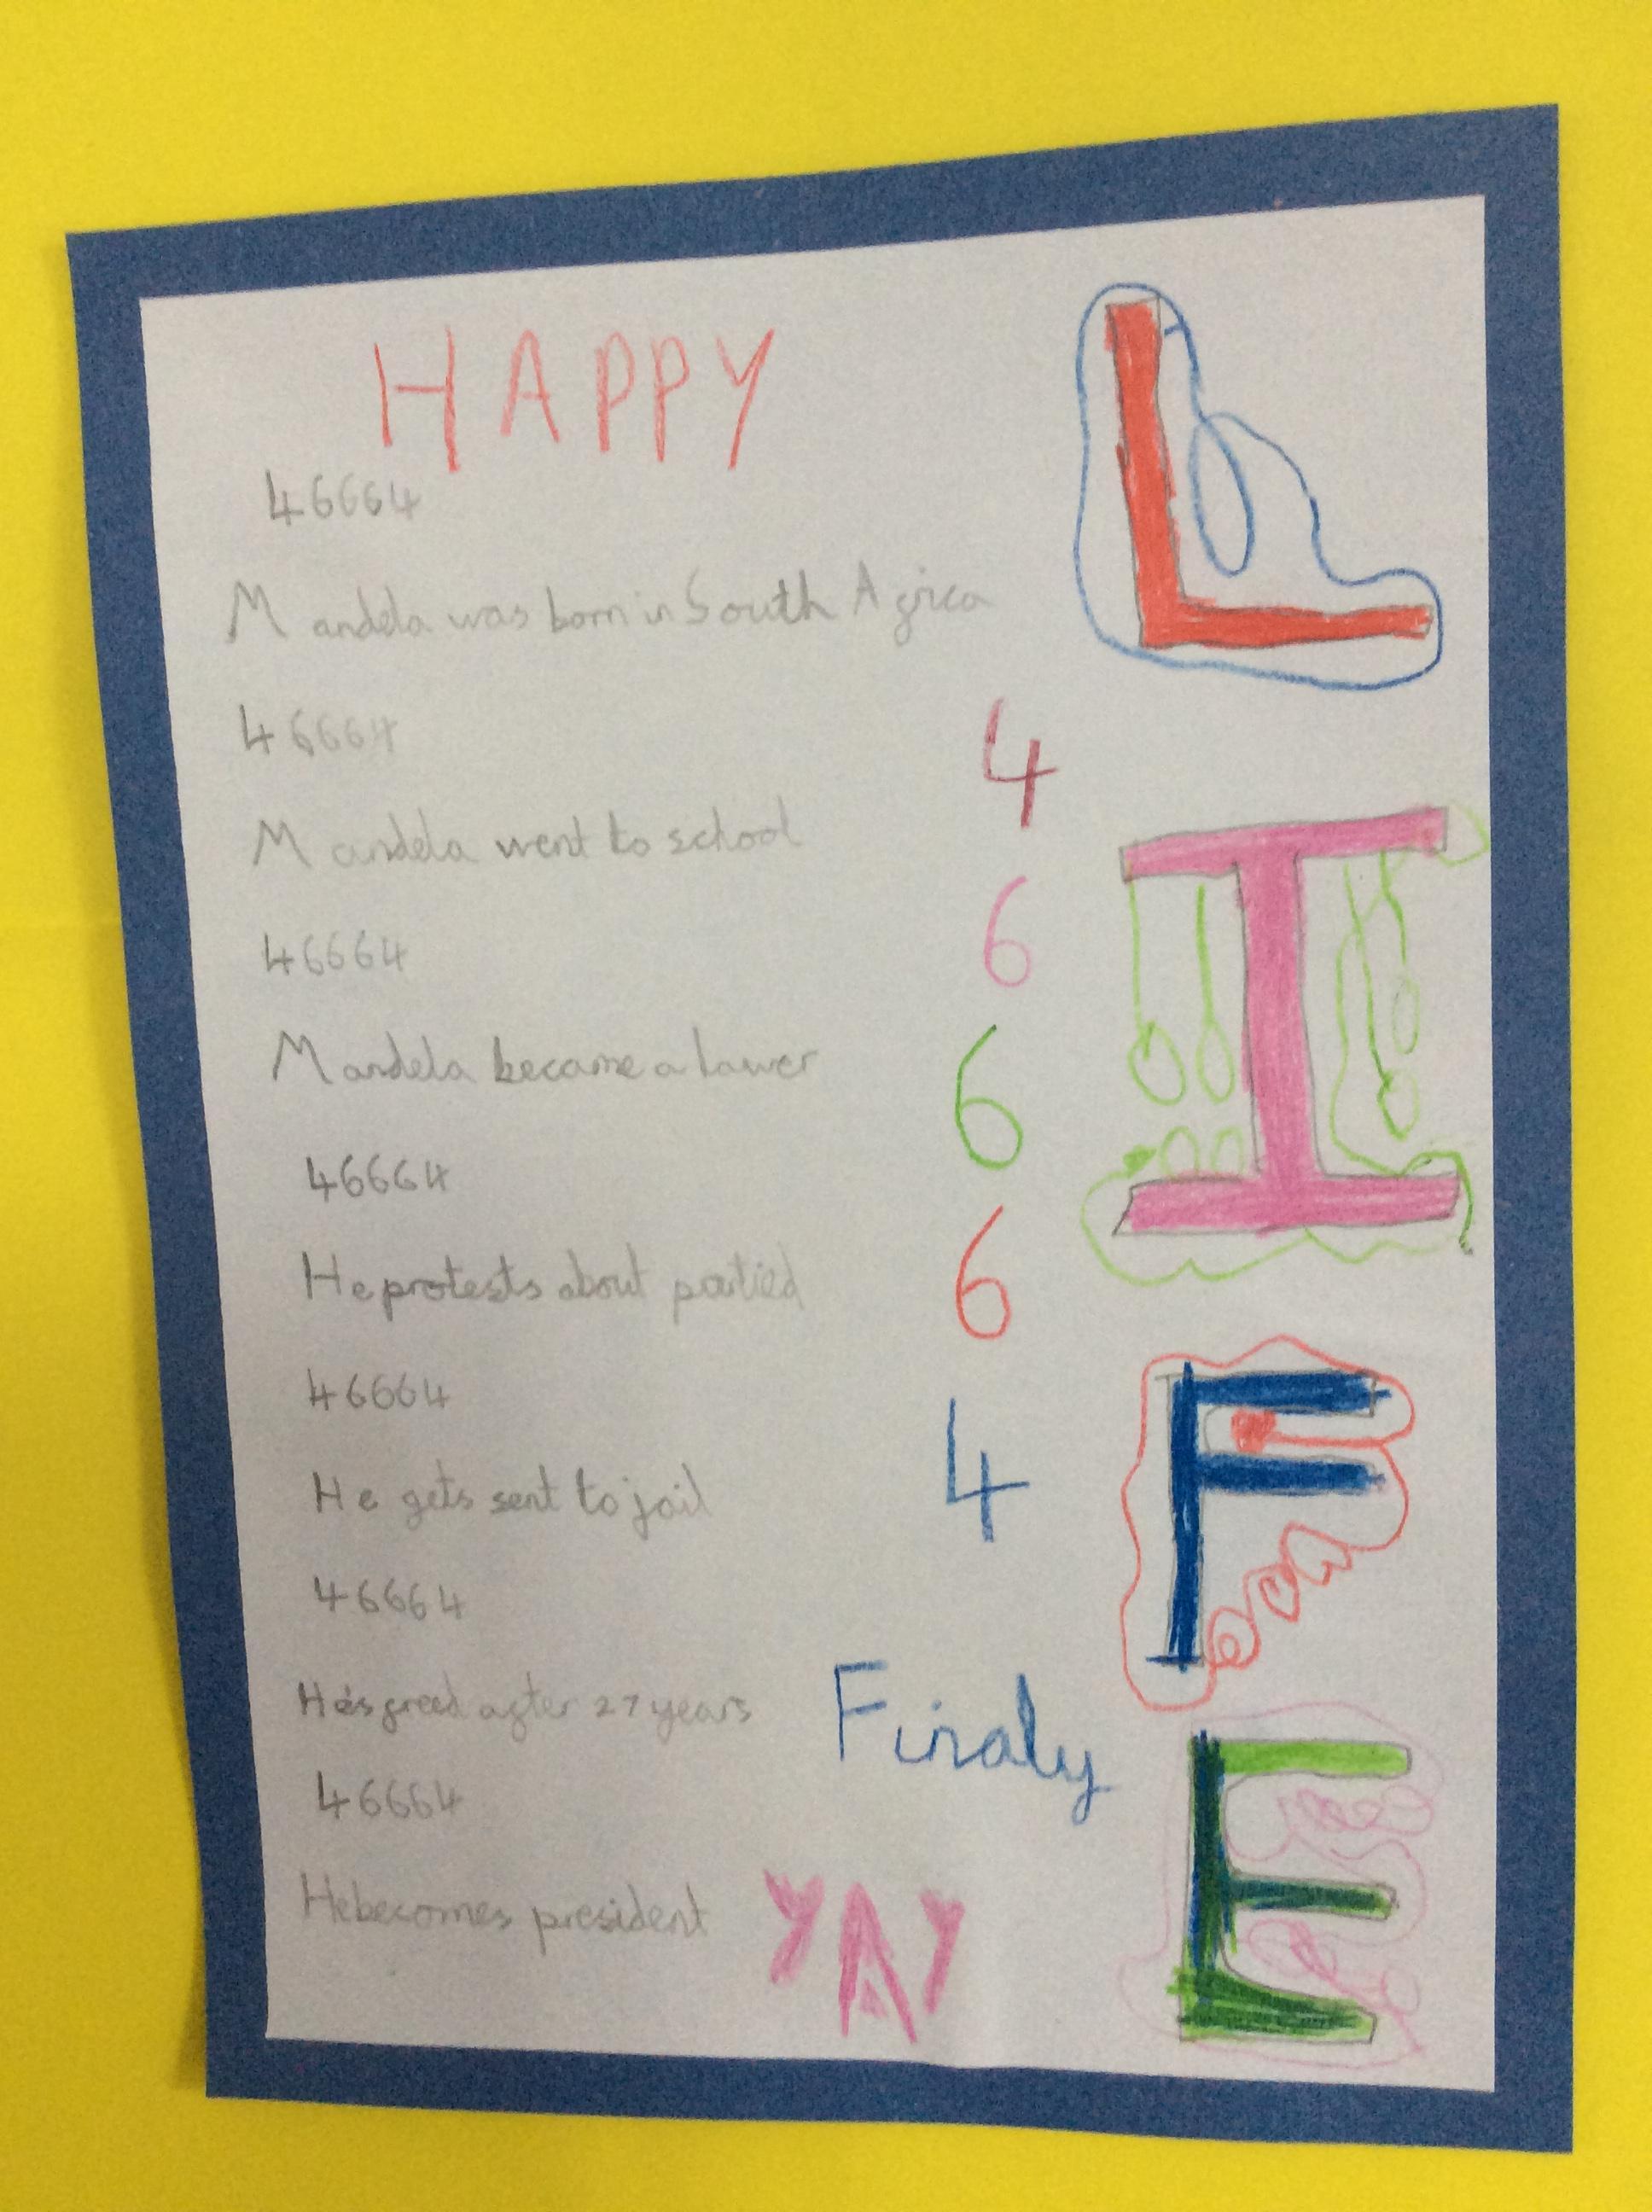 HAPPY
46664
Mandela was born in South Africa
46664
Mandela went to school
46664
Mandela became a lawer
46664
He protests about partied
46664
He gets sent to jail
46664
He's freed after 27 years
46664
He becomes president
4
6
6
6
4
Finaly
YAY
L
I
F
E